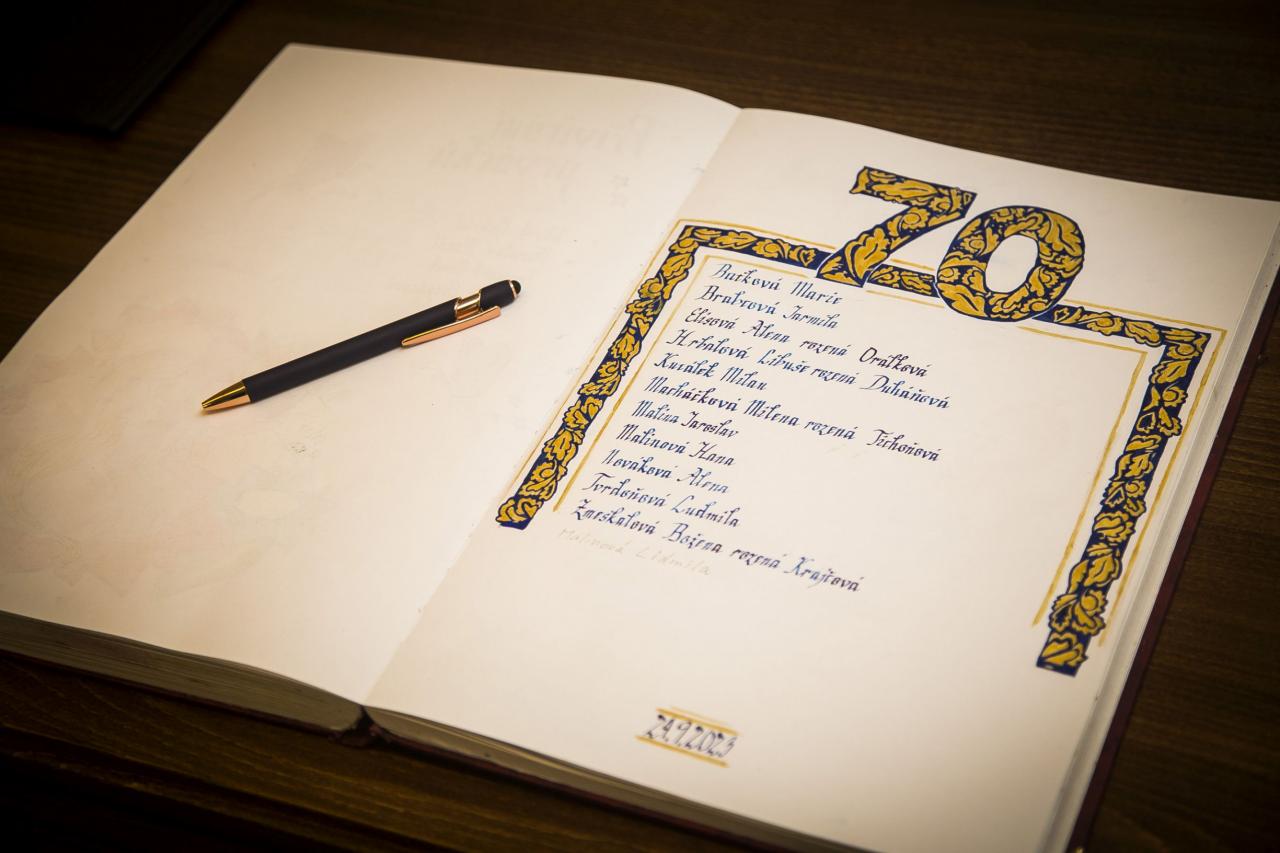 70
Bučková Marie
Brabcová Jarmila
Elisová Alena rozená Orálková
Hrbalová Libuše rozená Duháňová
Kusálek Milan
Macháčková Milena rozená Tichoňová
Malina Jaroslav
Malinová Hana
Nováková Alena
Tvrdoňová Ludmila
Zmeskalová Božena rozená Krajčová
Malinová Lidmila
24.9.2023